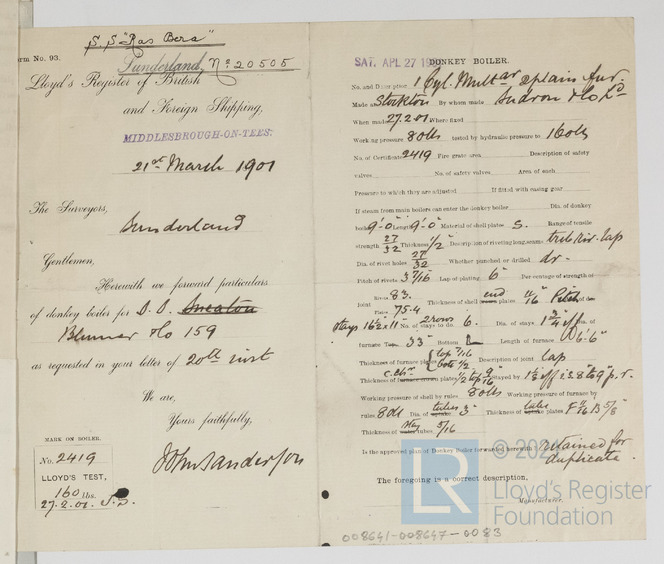 S.S "Ras Bera"
rm No. 93.
Sunderland, No 20505
Lloyd's Register of British
and Foreign Shipping,
MIDDLESBROUGH-ON-TEES.
21st March 1901
The Surveyors,
Sunderland
Gentlemen,
Herewith we forward particulars
of donkey boiler for S.S. Sneaton
Blumer & Co 159
as requested in your letter of 20th inst
We are,
Yours faithfully,
John Sanderson
MARK ON BOILER.
No. 2419
LLOYD'S TEST,
160 lbs.
27.2.01. J.S.
SAT. APL 27 19
DONKEY BOILER.
No. and Description 1 Cyl. Multar 2 plain fur.
Made at Stockton By whom made Sudron & Co Ld
When made 27.2.01 Where fixed
Working pressure 80 lbs tested by hydraulic pressure to 160 lbs
No. of Certificate 2419 Fire grate area Description of safety
valves No. of safety valves Area of each
Pressure to which they are adjusted If fitted with easing gear
If steam from main boilers can enter the donkey boiler Dia. of donkey
boiler 9'-0" Length 9'-0" Material of shell plates S. Range of tensile
strength 27/32 Thickness 1/2" Description of riveting long. seams treb. riv. lap
Dia. of rivet holes 27/32 Whether punched or drilled dr.
Pitch of rivets 3 7/16 Lap of plating 6" Per centage of strength of
joint Rivets 83. Plates 75.4 Thickness of shell crown end plates 11/16" Pitch of
stays 16 1/2 x 11 No. of stays to do. 2 rows 6. Dia. of stays 1 3/4" eff Dia. of
furnace Top 33" Bottom Length of furnace 6'.6"
Thickness of furnace plates top 7/16 bott 1/2 Description of joint lap
Thickness of furnace crown c.chr. plates 1/2 top 9/16 Stayed by 1 1/2 eff is. 8 to 9" p. r.
Working pressure of shell by rules 80 lbs Working pressure of furnace by
rules 80 lbs Dia. of uptake tubes 3" Thickness of uptake tubes plates F 11/16 B 5/8"
Thickness of water stay tubes 5/16
Is the approved plan of Donkey Boiler forwarded herewith retained for
duplicate.
The foregoing is a correct description,
Manufacturer.
© 2024
LR
Lloyd's Register
Foundation
008641-008647-0083